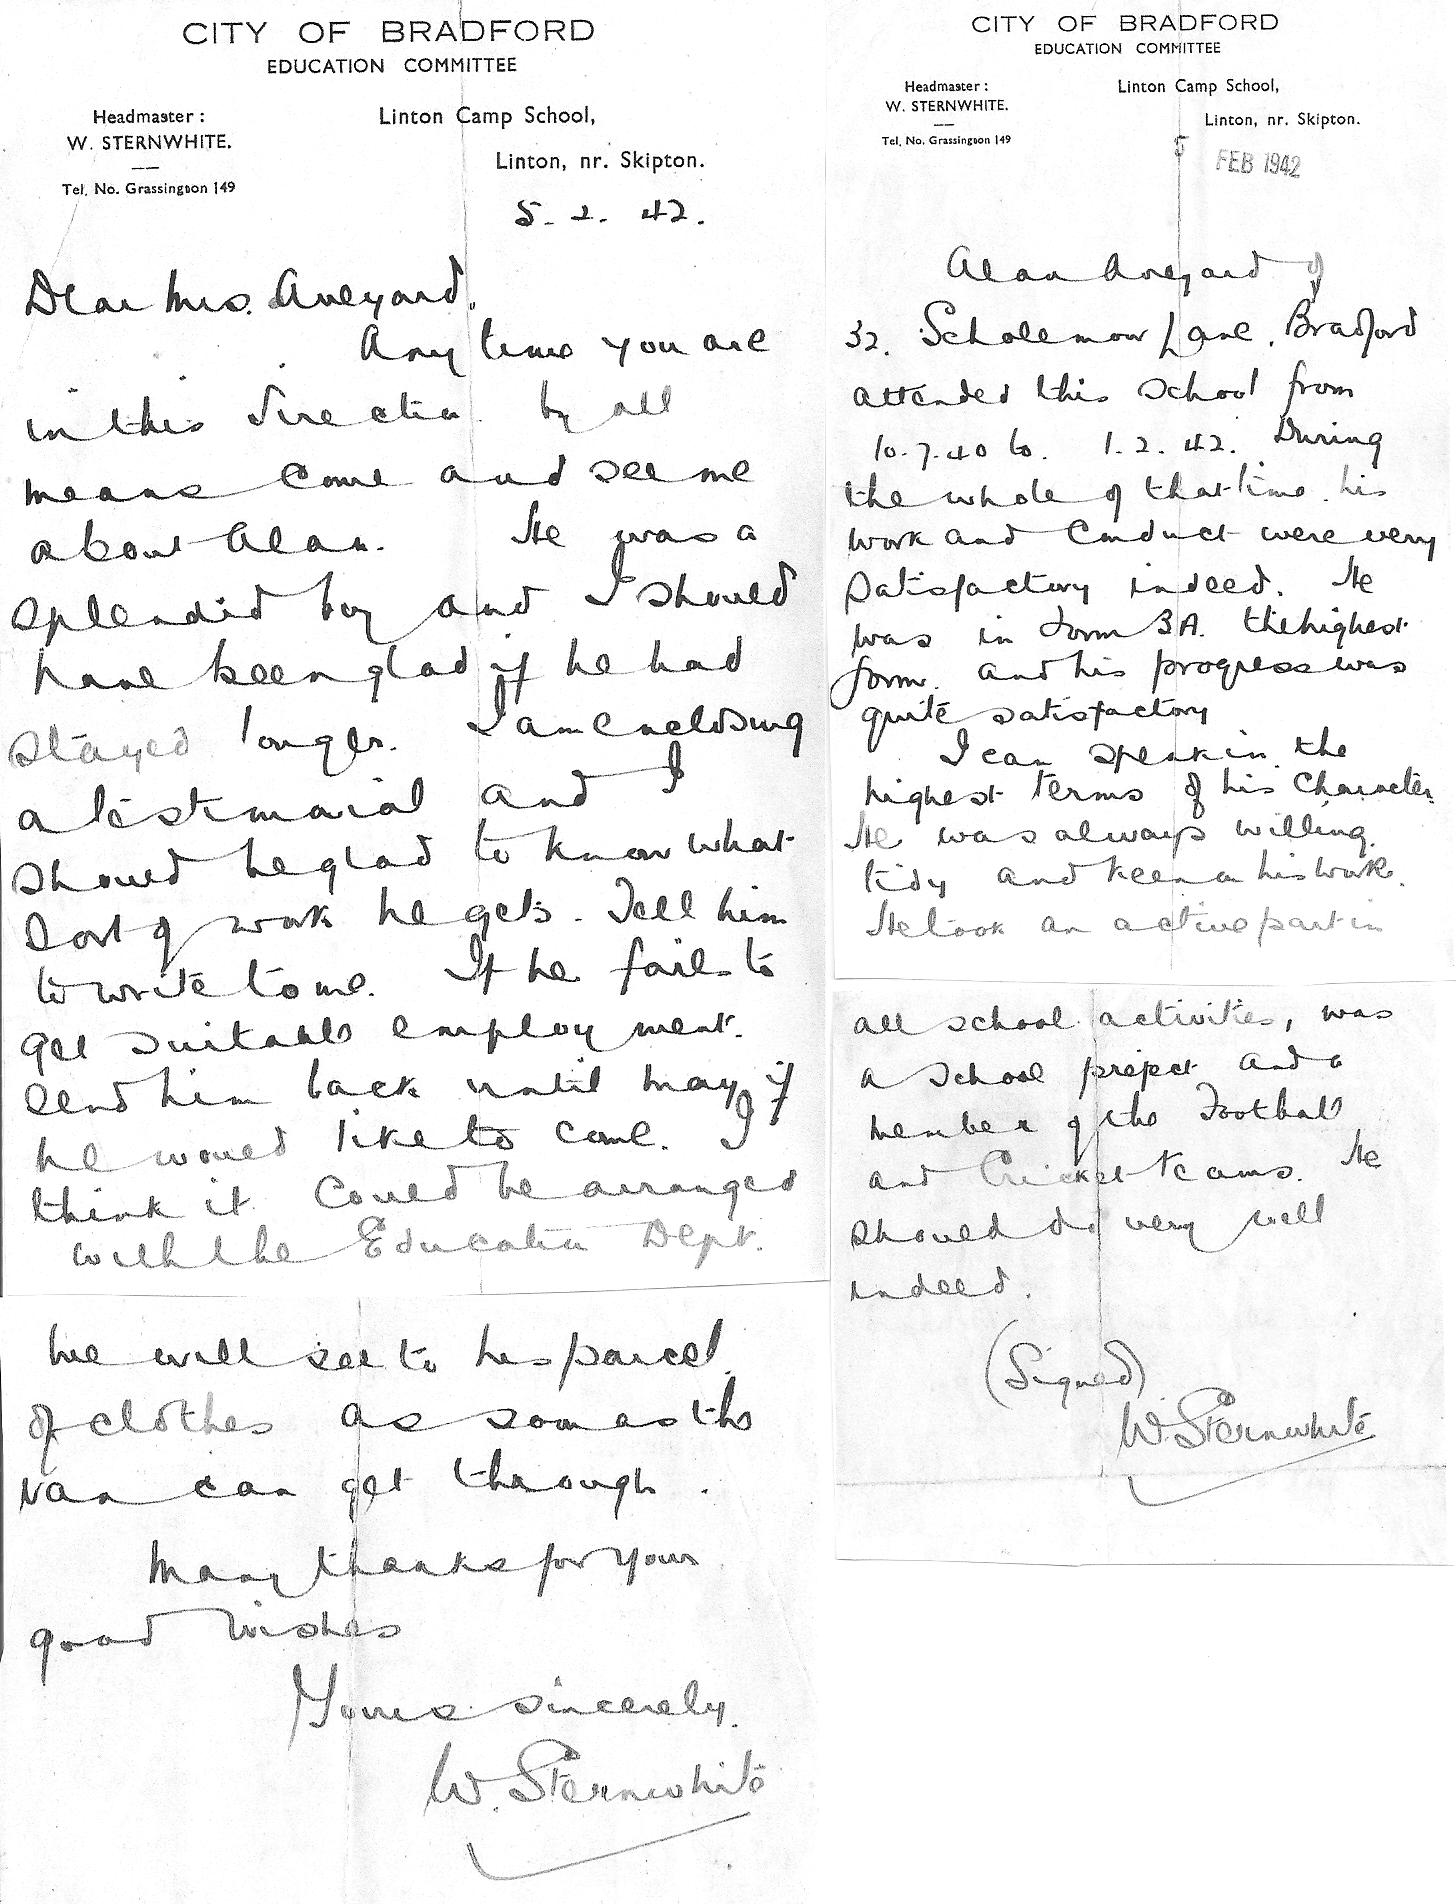 CITY OF BRADFORD
EDUCATION COMMITTEE
Headmaster:
W. STERNWHITE.
Tel. No. Grassington 149
Linton Camp School,
Linton, nr. Skipton.
5. 2. 42.
Dear Mrs. Aveyard,
Any time you are
in this direction by all
means come and see me
about Alan. He was a
splendid boy and I should
have been glad if he had
stayed longer. I am enclosing
a testimonial and I
should be glad to know what
sort of work he gets. Tell him
to write to me. If he fails to
get suitable employment.
send him back until May if
he would like to come. I
think it could be arranged
with the Education Dept.
We will see to his parcel
of clothes as soon as the
van can get through.
Many thanks for your
good wishes
Yours sincerely.
W. Sternwhite
CITY OF BRADFORD
EDUCATION COMMITTEE
Headmaster:
W. STERNWHITE.
Tel. No. Grassington 149
Linton Camp School,
Linton, nr. Skipton.
5 FEB 1942
Alan Aveyard of
32. Scholemoor Lane, Bradford
attended this school from
10.7.40 to 1.2.42. During
the whole of that time his
work and conduct were very
satisfactory indeed. He
was in Form 3A. the highest
form. and his progress was
quite satisfactory
I can speak in the
highest terms of his character.
He was always willing.
tidy and keen on his work.
He took an active part in
all school activities, was
a school prefect and a
member of the Football
and Cricket teams. He
should do very well
indeed.
(Signed)
W. Sternwhite